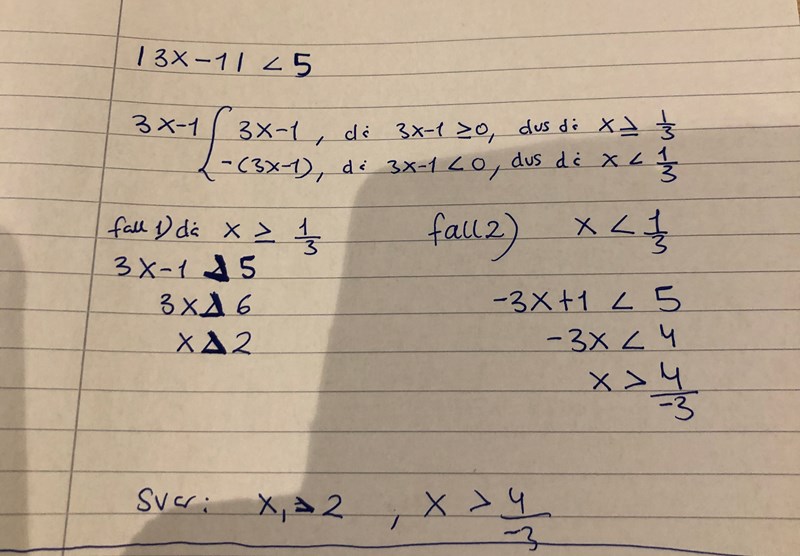 |3x-1| < 5
3x-1 { 3x-1, då 3x-1 ≥ 0, dvs då x ≥ 1/3
-(3x-1), då 3x-1 < 0, dvs då x < 1/3
fall 1) då x ≥ 1/3
3x-1 5
3x 6
x 2
fall 2) x < 1/3
-3x+1 < 5
-3x < 4
x > 4/-3
Svar: x₁ 2 , x > 4/-3